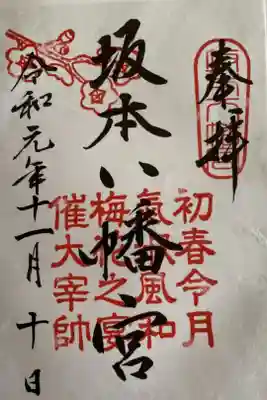 奉拝
初春令月
氣淑風和
坂本八幡宮
梅花之宴
催大宰帥
令和元年十一月十日